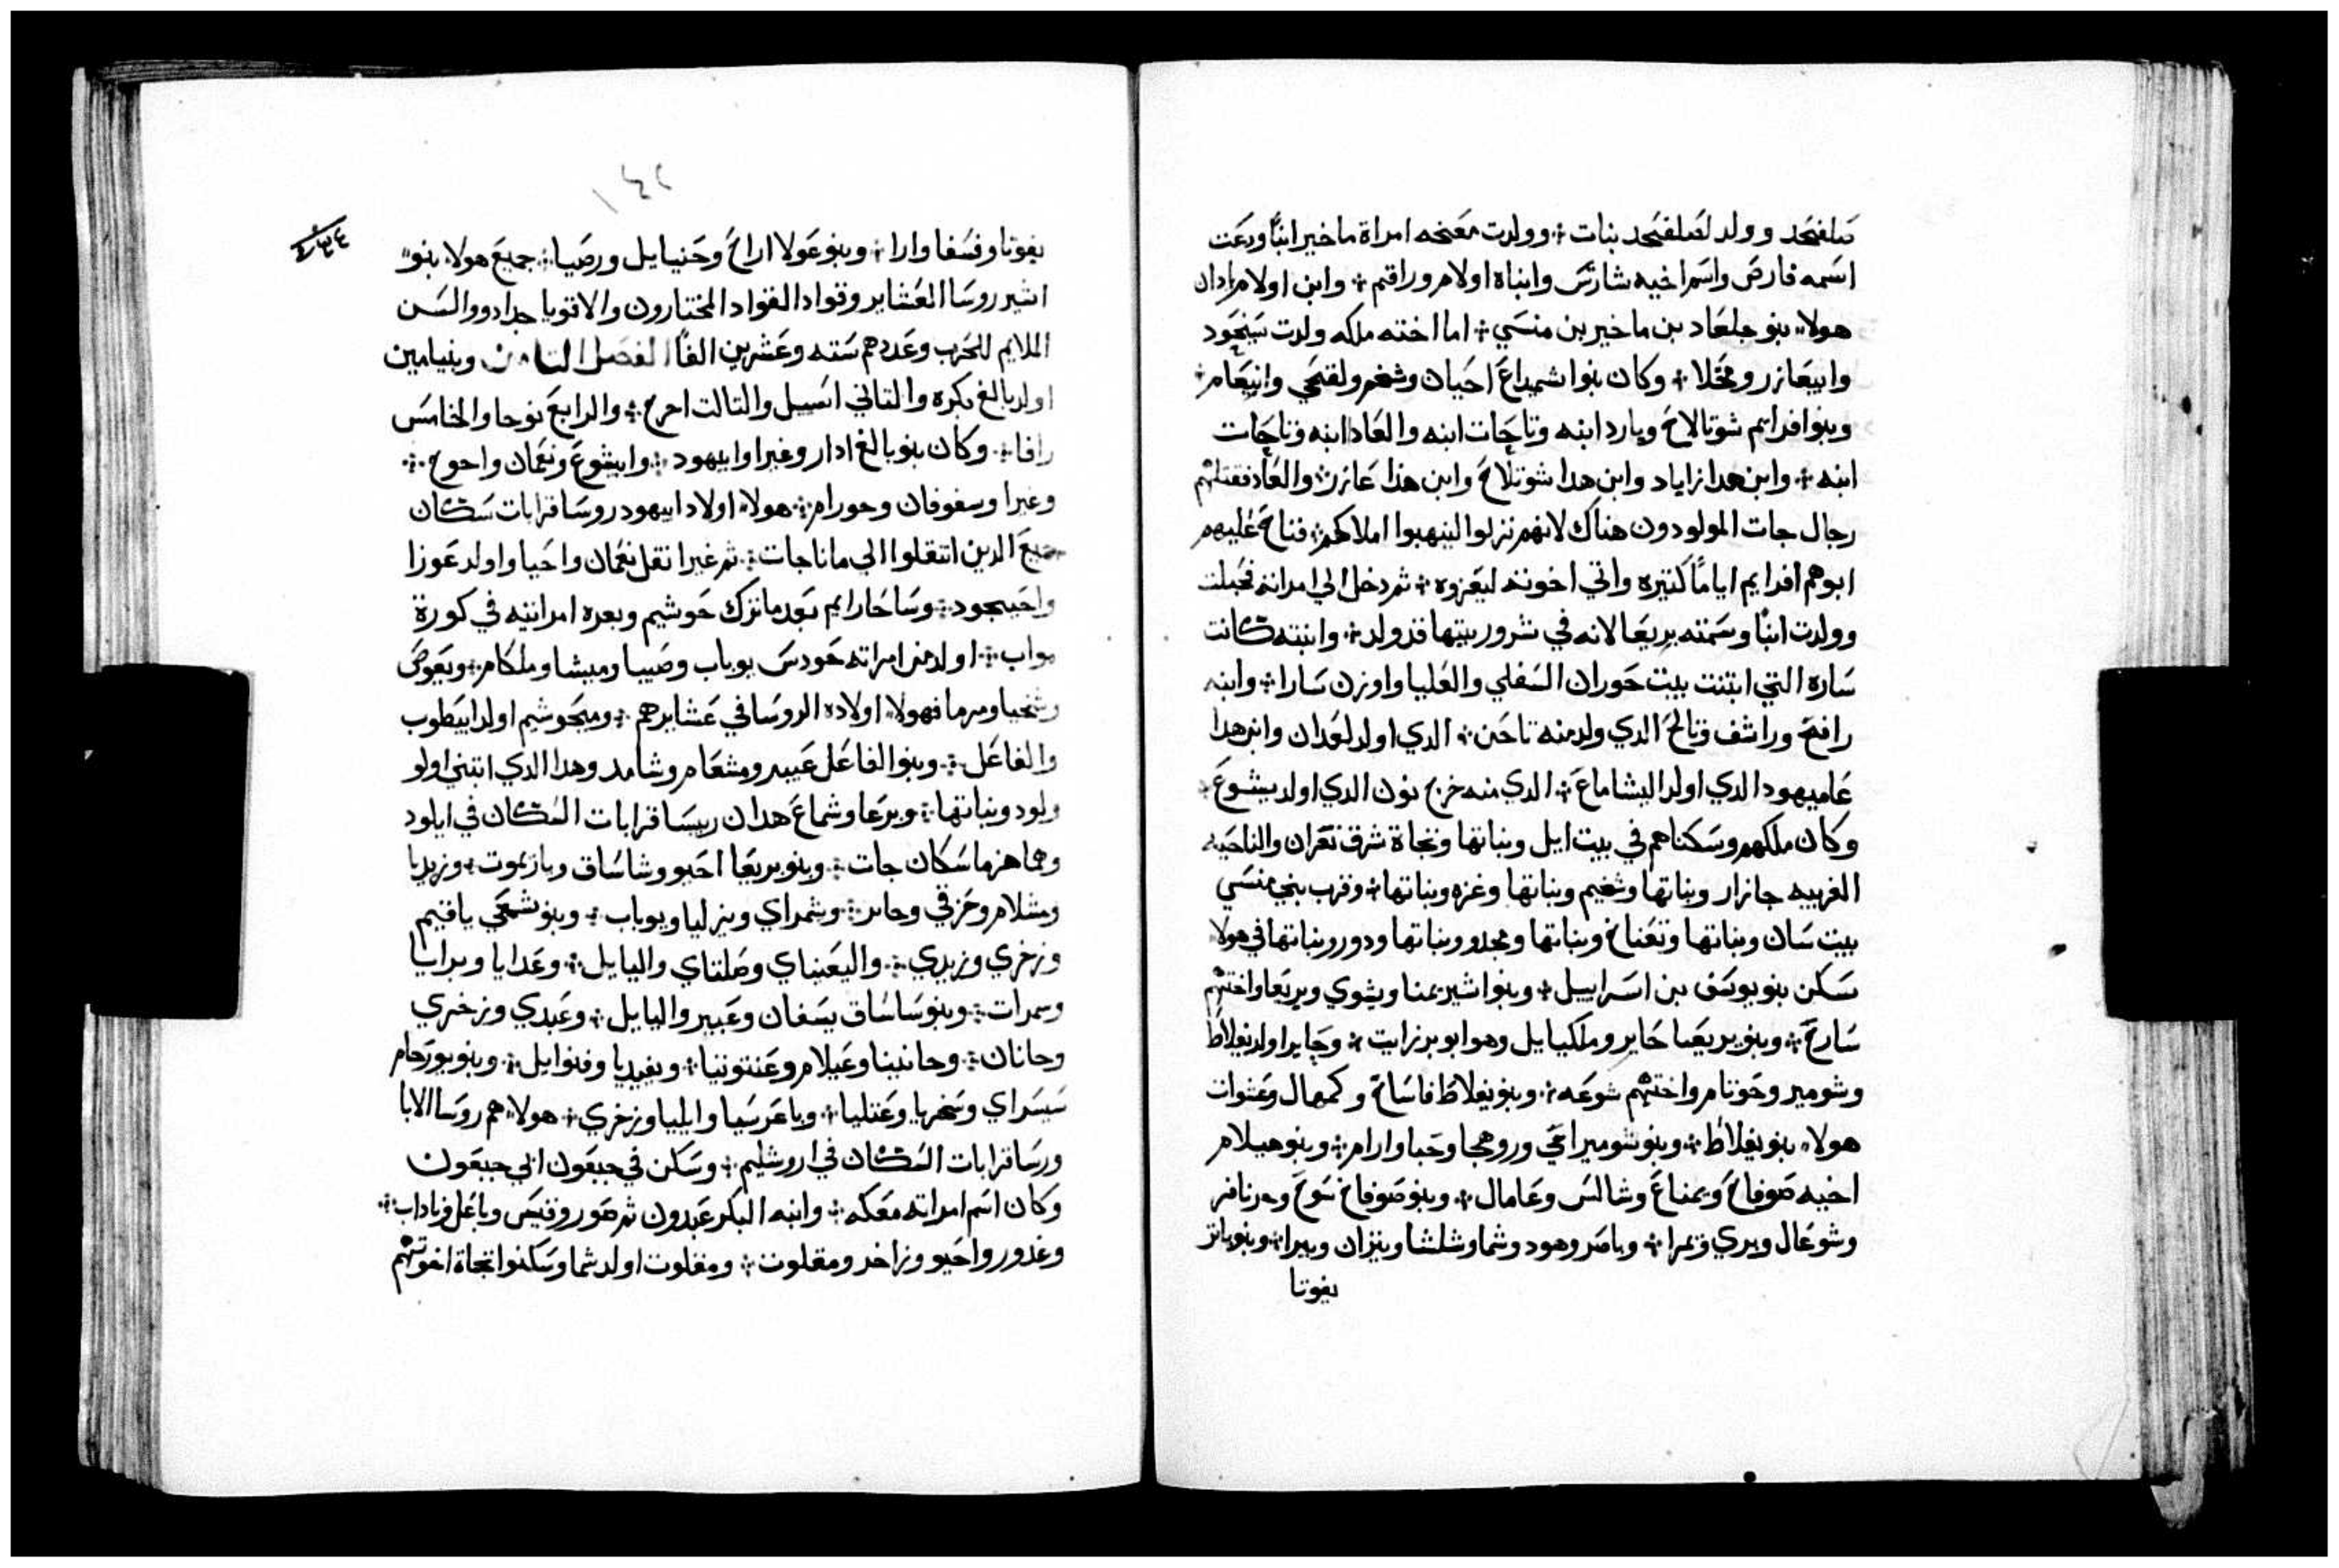 صلفحد وولد لصلفحد بنات ۞ وولدت معخه امراة ماخير ابنًا ودعت
اسمه فارص واسم اخيه شارش وابناه اولام وراقم ۞ وابن اولام بادان
هولاء بنو جلعاد بن ماخير بن منسي ۞ اما اخته ملكه ولدت سنحود
وابيعازر ومحلا ۞ وكان بنوا شميداع احيان وشخم ولقحي وانيعام
وبنو افرايم شوتالاخ وبارد ابنه وتاحات ابنه والعادا ابنه وتاحات
ابنه ۞ وابن هدا زاباد وابن هدا شوتلاخ وابن هدا عازر ۞ والعاد فقتلهم
رجال جات المولودون هناك لانهم نزلوا لينهبوا املاكهم ۞ فناح عليهم
ابوهم افرايم ايامًا كتيره واتي اخوته ليعزوه ۞ ثم دخل الي امراته فحبلت
وولدت ابنًا وسمته بريعا لانه في شرور بيتها قد ولد ۞ وابنته كانت
ساره التي ابتنت بيت حوران السفلي والعليا واوزن سارا ۞ وابنه
رافح وراشف وتالح الدي ولد منه تاحن ۞ الدي اولد لعدان وابن هدا
عاميهود الدي اولد اليشاماع ۞ الدي منه خرج نون الدي اولد يشوع
وكان ملكهم وسكناهم في بيت ايل وبناتها وتجاة شرق نعران والناحيه
الغربيه جازار وبناتها وشخيم وبناتها وغزه وبناتها ۞ وقرب بني منسي
بيت سان وبناتها وتعناخ وبناتها ومجدو وبناتها ودور وبناتها في هولا
سكن بنو يوسف بن اسراييل ۞ وبنوا اشير يمنا ويشوي وبريعا واختهم
سارح ۞ وبنو بريعا حابر وملكيايل وهو ابو برزايت ۞ وحابر اولد يفلاط
وشومير وحوتام واختهم شوعه ۞ وبنو يفلاط فاساخ وكمهال وعشوات
هولاء بنو يفلاط ۞ وبنو شومير احي وروهجا وحبا وارام ۞ وبنو هيلام
اخيه صوفاخ ويمناع وشالس وعامال ۞ وبنو صوفاخ سوح وحرنافر
وشوعال وبري ويمرا ۞ وباصر وهود وشما وشلشا ويتران وبيرا ۞ وبنو ياتر
يفوتا
١٤٢
يفوتا وفسفا وارا ۞ وبنو عولا اراخ وحنيايل ورصيا ۞ جميع هولاء بنو
اشير روسا العشاير وقواد القواد المختارون والاقويا جدا دوو السن
الملايم للحرب وعددهم سته وعشرين الفًا الفصل التامن وبنيامين
اولد بالغ بكره والتاني اسبيل والتالت احرح ۞ والرابع نوحا والخامس
رافا ۞ وكان بنو بالغ ادار وغيرا وابيهود ۞ وابيشوع ونعمان واحوح ۞
وغيرا وسفوفان وحورام ۞ هولاء اولاد ابيهود روسا قرابات سكان
جبع الدين انتقلوا الي ماناحات ۞ ثم غيرا نقل نعمان واحيا واولد عوزا
واحيحود ۞ وساحارايم بعدما ترك حوشيم وبعره امراتيه في كورة
مواب ۞ اولد من امراته حودس يوباب وصيبا وميشا وملكام ۞ ويعوص
وشخيا ومرما فهولاء اولاده الروسا في عشايرهم ۞ ومن حوشيم اولد ابيطوب
والفاعل ۞ وبنوا الفاعل عيبر ومشعام وشامد وهدا الدي ابتني اولو
ولود وبناتها ۞ وبرعا وشماع هدان رييسا قرابات السكان في ايلود
وهما هزما سكان جات ۞ وبنو بريعا احيو وشاساق ويازيموت ۞ وزبديا
ومشلام وحزقي وحابر ۞ وشمراي ويزليا ويوباب ۞ وبنو شمعي ياقيم
وزخري وزبدي ۞ واليعيناي وصلتاي واليايل ۞ وعدايا وبرايا
وسمرات ۞ وبنو ساساق يسفان وعبير واليايل ۞ وعبدي وزخري
وحانان ۞ وحانينا وعيلام وعنتوتيا ۞ ويفيديا وفنوايل ۞ وبنو يورحام
سيسراي وسخريا وعتليا ۞ وياعرسيا وايليا وزخري ۞ هولاء هم روسا الابا
ورسا قرابات السكان في اروشليم ۞ وسكن في جبعون ابي جبعون
وكان اسم امراته معكه ۞ وابنه البكر عبدون ثم صور وقيس وباعل وناداب ۞
وغدور واحيو وزاخر ومقلوت ۞ ومقلوت اولد شما وسكنوا تجاة اخوتهم